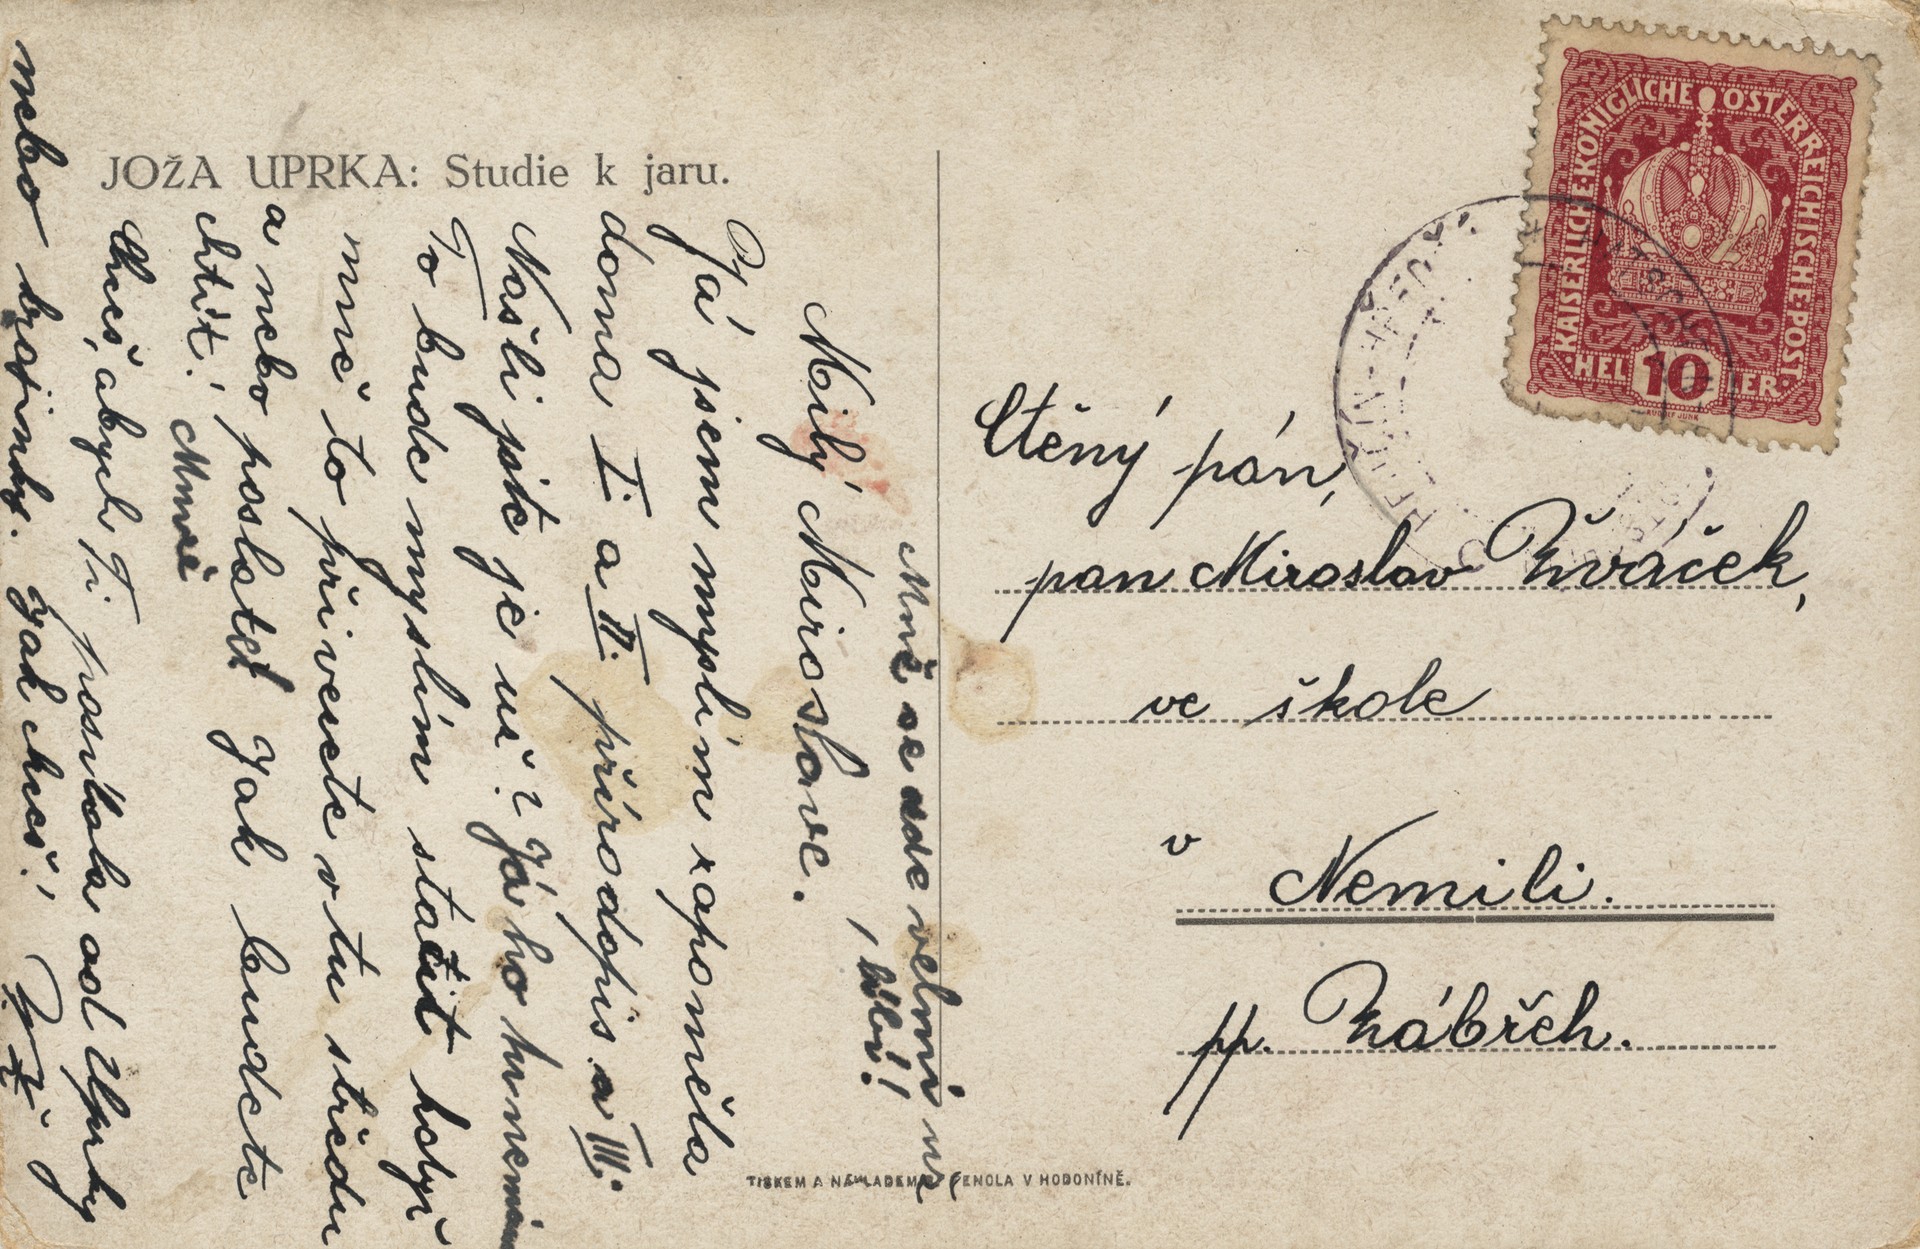 JOŽA UPRKA: Studie k jaru.
Milý Miroslave.
Já jsem myslím zapoměla
doma I. a II. přírodopis a III.
Našli jste je už? Já ho tu nemám
To bude myslím stačit když
mně to přivezete v tu středu
a nebo poslat! Jak budete
chtít! Mně
Chceš, abych Ti posílala od Uprky
nebo krajinky. Jak chceš!
Mně se zde velmi
líbí!
Ctěný pán,
pan Miroslav Žváček,
ve škole
v Nemili.
pp. Zábřeh.
KAISERLICHE KÖNIGLICHE ÖSTERREICHISCHE POST
HELLER 10
RUDOLF JUNK
TISKEM A NÁKLADEM V HODONÍNĚ.